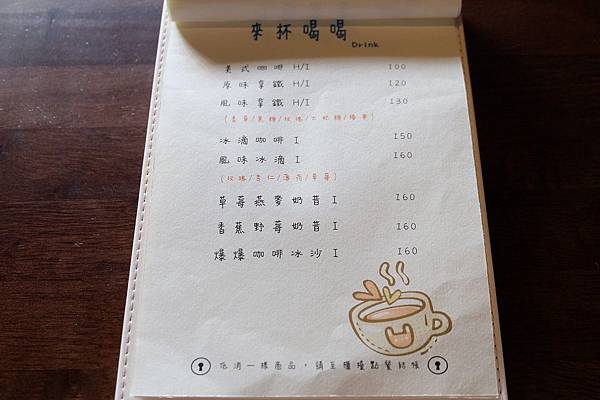 來杯喝喝 Drink
美式咖啡 H/I 100
原味拿鐵 H/I 120
風味拿鐵 H/I 130
(香草/黑糖/玫瑰/太妃糖/榛果)
冰滴咖啡 I 150
風味冰滴 I 160
(玫瑰/杏仁/薄荷/草莓)
草莓燕麥奶昔 I 160
香蕉野莓奶昔 I 160
爆爆咖啡冰沙 I 160
低消一樣產品，請至櫃檯點餐結帳